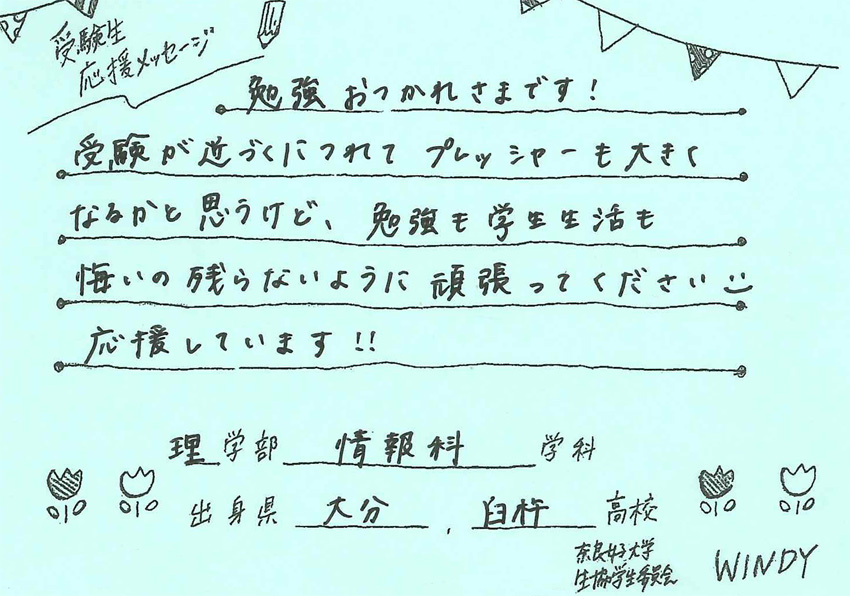 受験生
応援メッセージ
勉強おつかれさまです!
受験が近づくにつれてプレッシャーも大きく
なるかと思うけど、勉強も学生生活も
悔いの残らないように頑張ってください
応援しています!!
理学部 情報科 学科
出身県 大分 , 臼杵 高校
奈良女子大学
生協学生委員会 WINDY